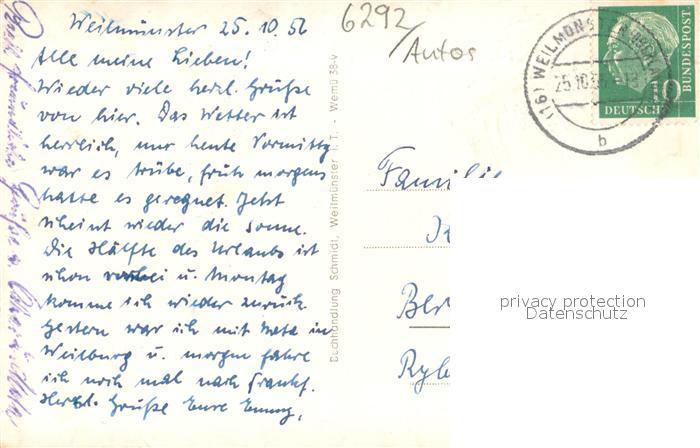 Weilmünster 25.10.56
Alle meine Lieben!
Wieder viele herzl. Grüße
von hier. Das Wetter ist
herrlich, nur heute Vormittg
war es trübe, früh morgens
hatte es geregnet. Jetzt
scheint wieder die Sonne.
Die Hälfte des Urlaubs ist
schon vorbei u. Montag
komme ich wieder zurück
Gestern war ich mit Meta in
Weilburg u. morgen fahre
ich noch mal nach Frankf.
Herzl. Grüße Eure
Grüße
6292/
Autos
Buchhandlung Schmidt, Weilmünster i. T. - Wemü 38-v
(16) WEILMÜNSTER
25.10.56
b
10
DEUTSCHE
BUNDESPOST
Famili
Ber
Ryb
privacy protection
Datenschutz